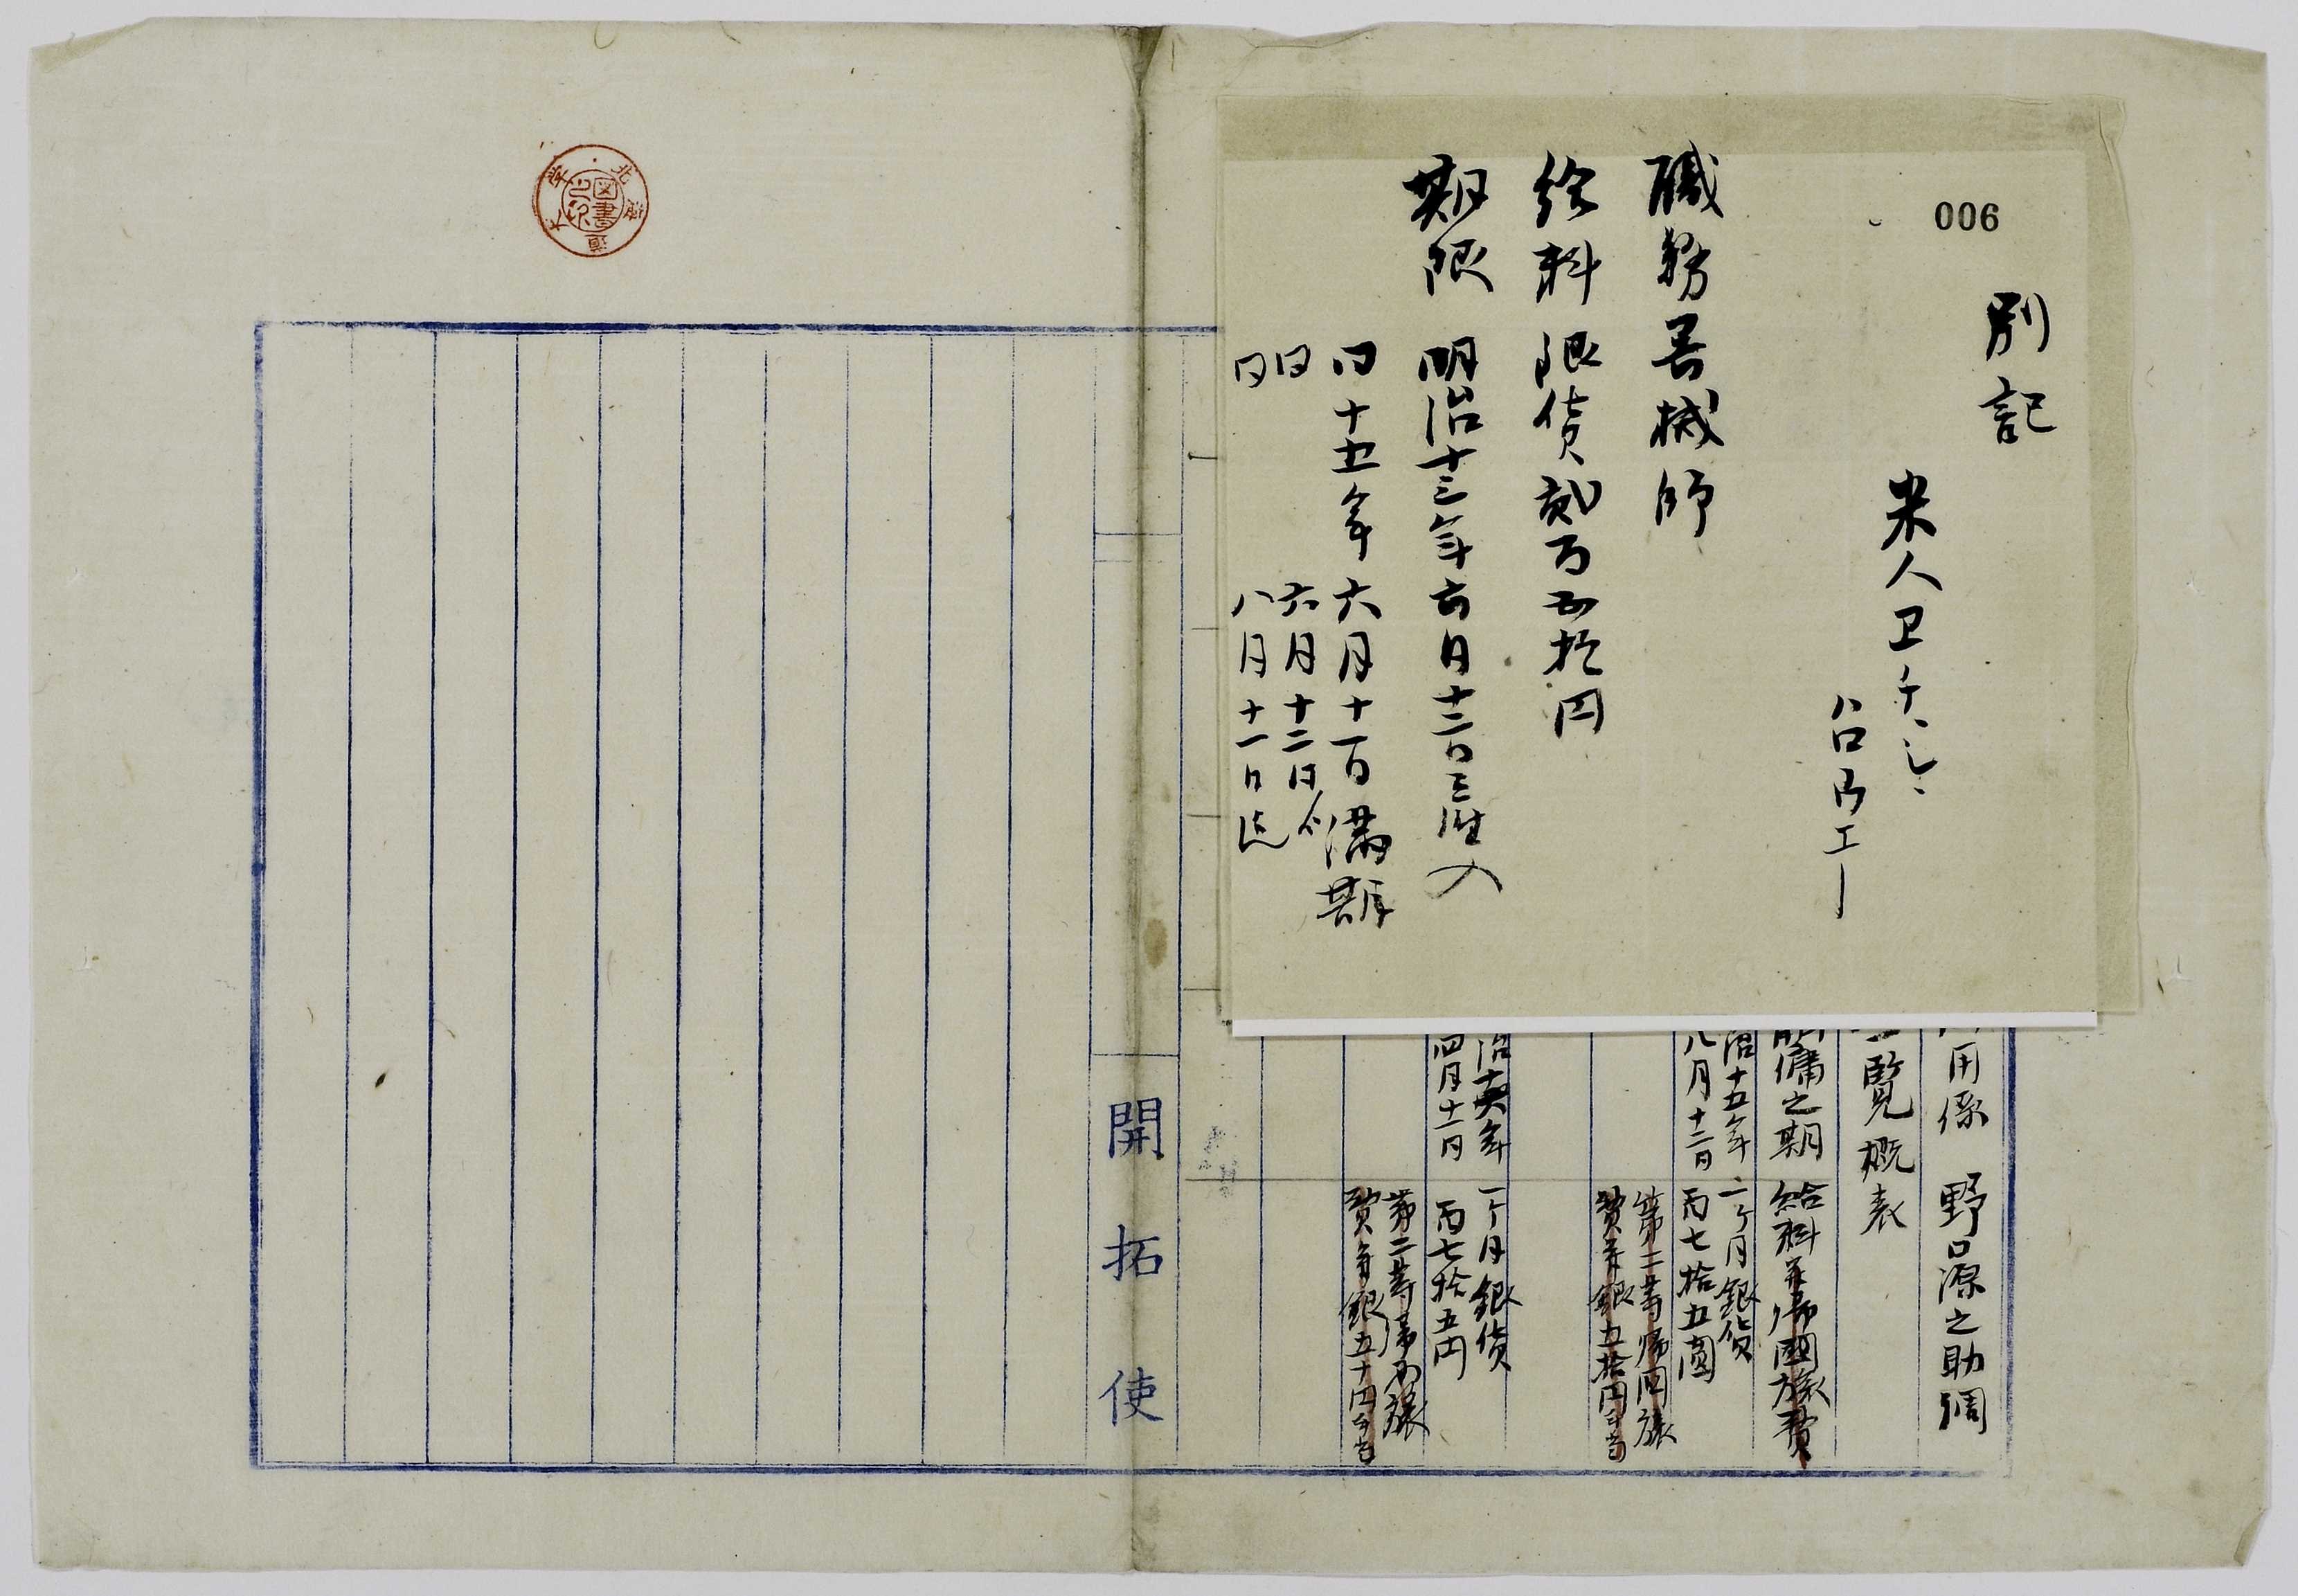 006
別記
米人ヱチ、シ、
ハロウエー
職務器械師
給料 銀貨貳百五拾円
期限 明治十三年六月十二日ヨリ雇入
同十五年六月十一日満期
同 六月十二日ゟ
同 八月十一日迄
用係 野口源之助調
一覧概表
解傭之期 給料并帰國旅費
治十五年 一ケ月銀貨
八月十二日 百七拾五圓
第二等帰国旅
費并銀五拾円手当
治十六年 一ケ月銀貨
四月十一日 百七拾五円
第二等帰国旅
費并銀五十円手当
開拓使
北海道大学
図書之印